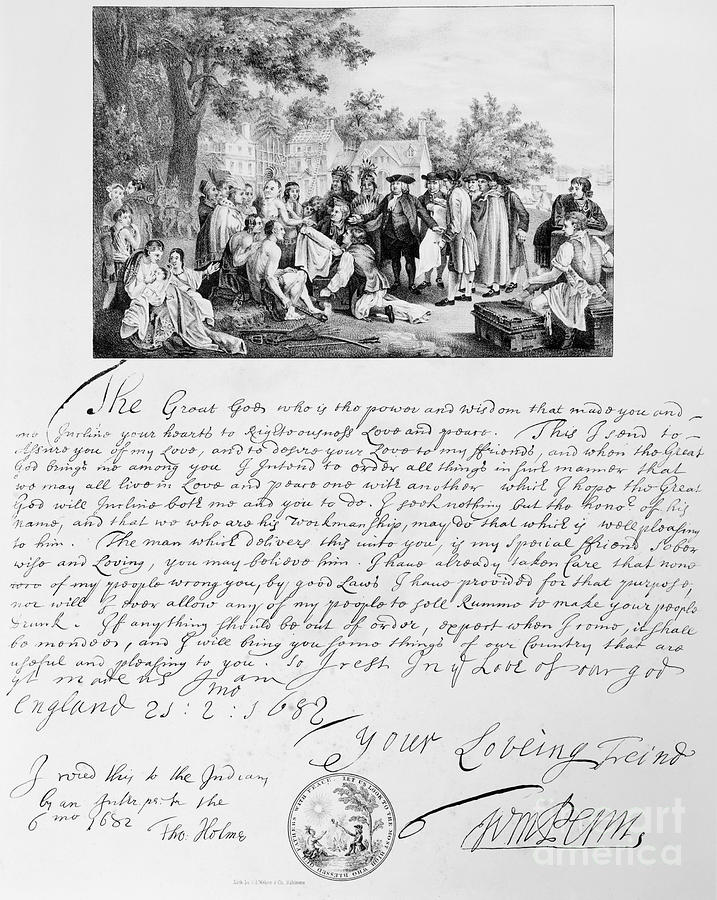 The Great God who is the power and wisdom that made you and
me Incline your hearts to Righteousness Love and peace. This I send to
Assure you of my Love, and to desire your Love to my ffriends, and when the Great
God brings me among you I Intend to order all things in such manner that
we may all live in Love and peace one with another which I hope the Great
God will Incline both me and you to do. I seek nothing but the honor of his
name, and that we who are his workmanship, may do that which is well pleasing
to him. The man which delivers this unto you, is my special ffriend Sober
wise and Loving, you may believe him. I have already taken Care that none
of my people wrong you, by good Laws I have provided for that purpose,
nor will I ever allow any of my people to sell Rumme to make your people
Drunk. If anything should be out of order, expect when I come, it shall
be mended, and I will bring you some things of our Country that are
useful and pleasing to you. So I rest In ye Love of our god
yt made us I am
England 21 : 2 mo : 1682
Your Loveing Freind
I read this to the Indians
by an Interpreter the
6 mo 1682 Tho: Holme
Wm Penn
LET US LOOK TO THE MOST HIGH WHO BLESSED OUR FATHERS WITH PEACE
fine art
america